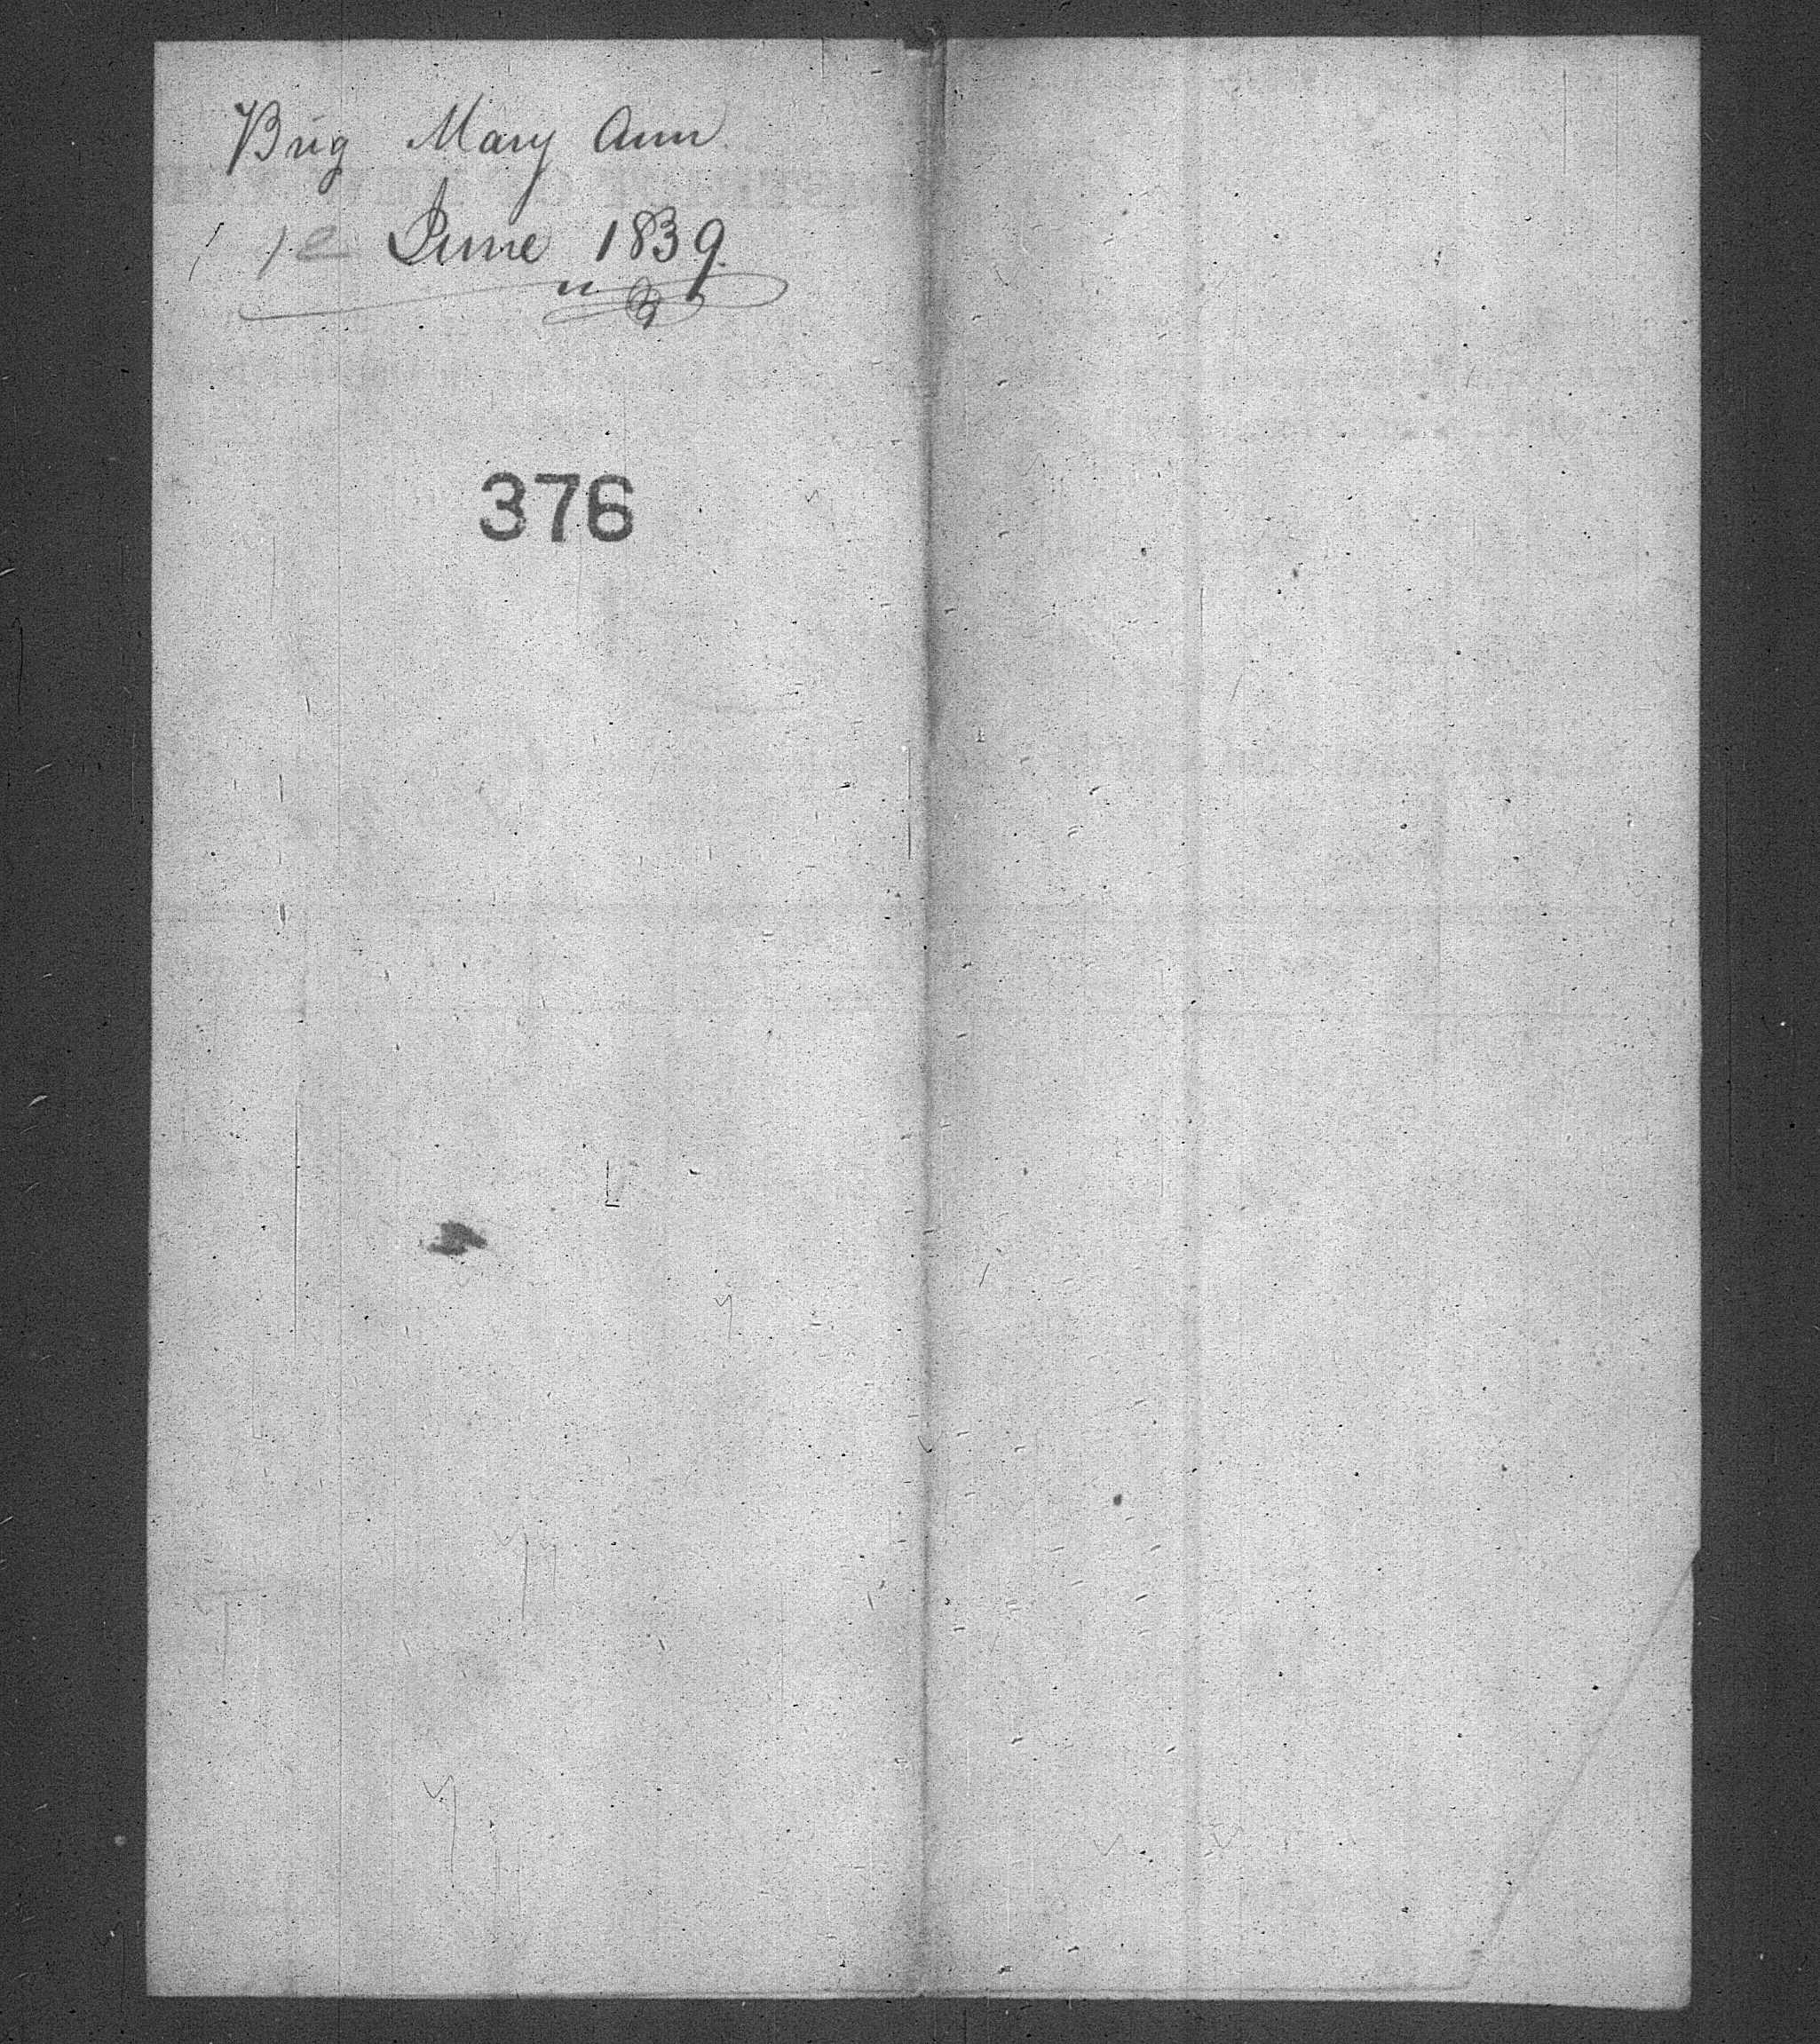 Brig Mary Ann
June 1839.
376